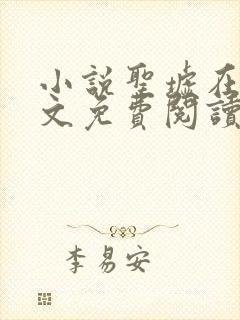 小説聖墟在
文免費閱讀
李易安